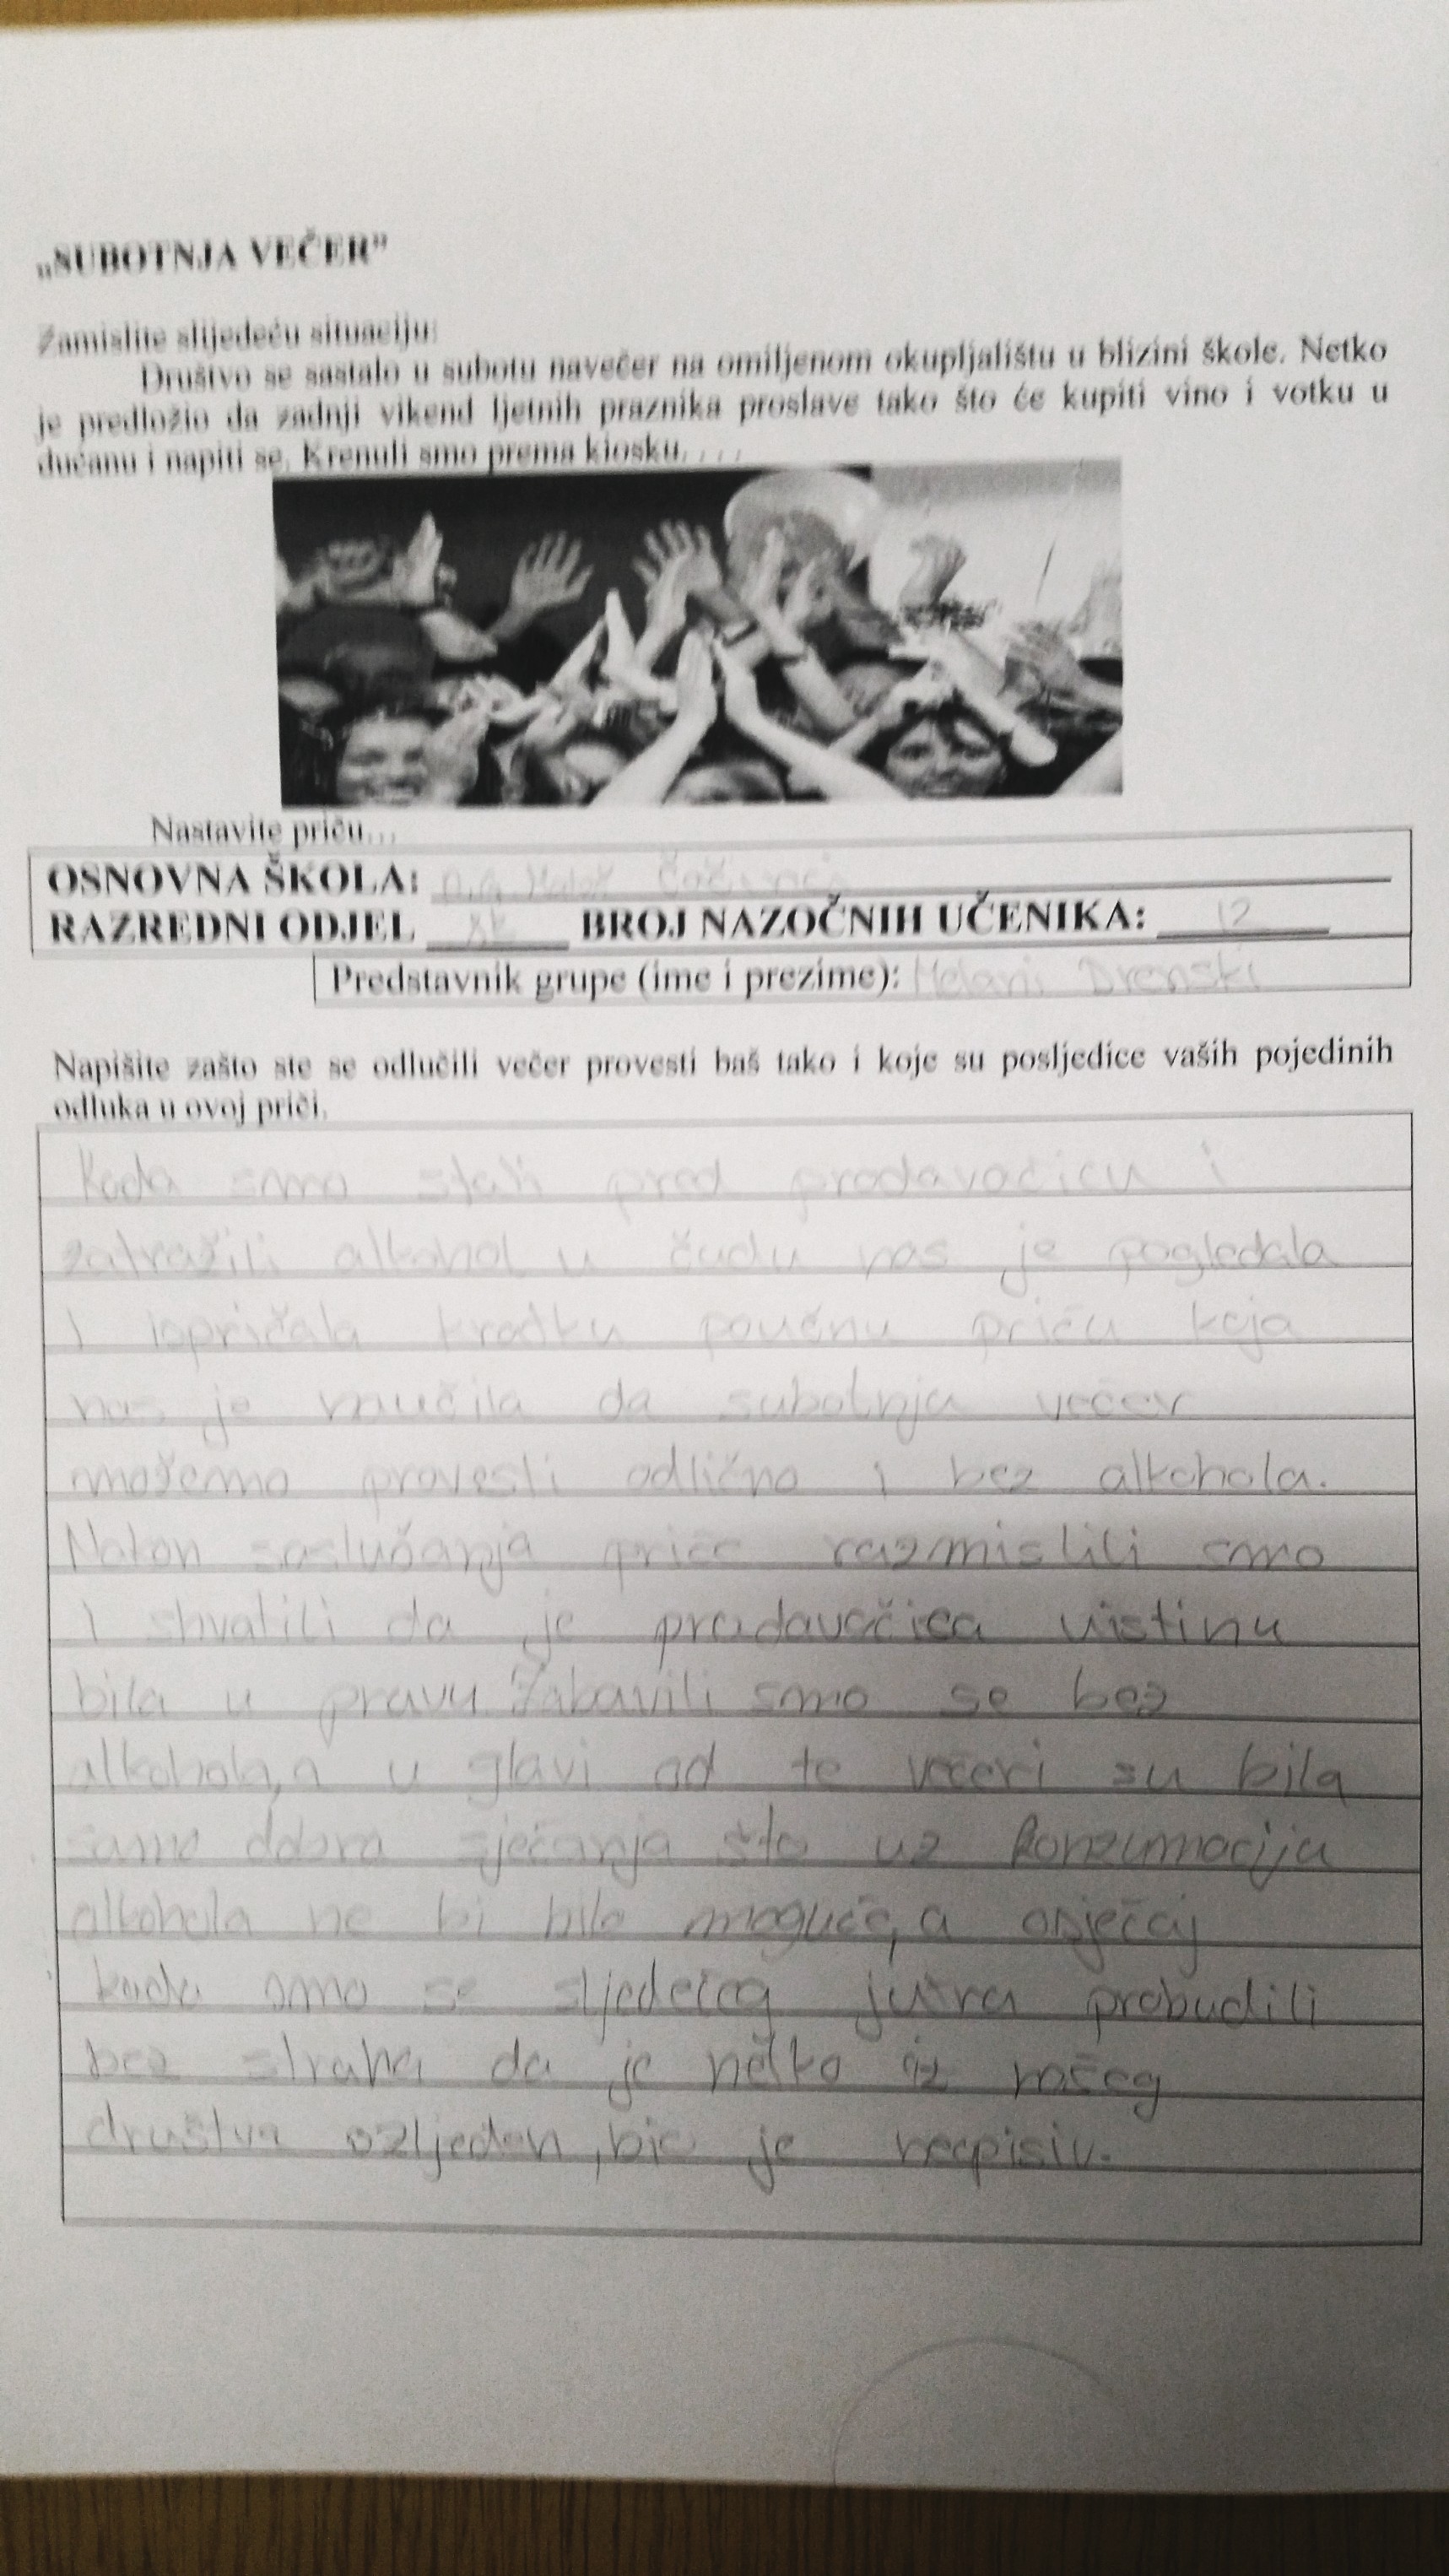 „SUBOTNJA VEČER"
Zamislite slijedeću situaciju:
Društvo se sastalo u subotu navečer na omiljenom okupljalištu u blizini škole. Netko
je predložio da zadnji vikend ljetnih praznika proslave tako što će kupiti vino i votku u
dućanu i napiti se. Krenuli smo prema kiosku. . . .
Nastavite priču...
OSNOVNA ŠKOLA:
RAZREDNI ODJEL BROJ NAZOČNIH UČENIKA: 12
Predstavnik grupe (ime i prezime): Melani Drenski
Napišite zašto ste se odlučili večer provesti baš tako i koje su posljedice vaših pojedinih
odluka u ovoj priči.
Kada smo stali pred prodavačicu i
zatražili alkohol u čudu nas je pogledala
i ispričala kratku poučnu priču koja
nas je naučila da subotnju večer
možemo provesti odlično i bez alkohola.
Nakon saslušanja priče razmislili smo
i shvatili da je prodavačica uistinu
bila u pravu. Zabavili smo se bez
alkohola, a u glavi od te večeri su bila
samo dobra sjećanja što uz konzumaciju
alkohola ne bi bilo moguće, a osjećaj
kada smo se sljedećeg jutra probudili
bez straha da je netko iz našeg
društva ozljeđen, bio je neopisiv.